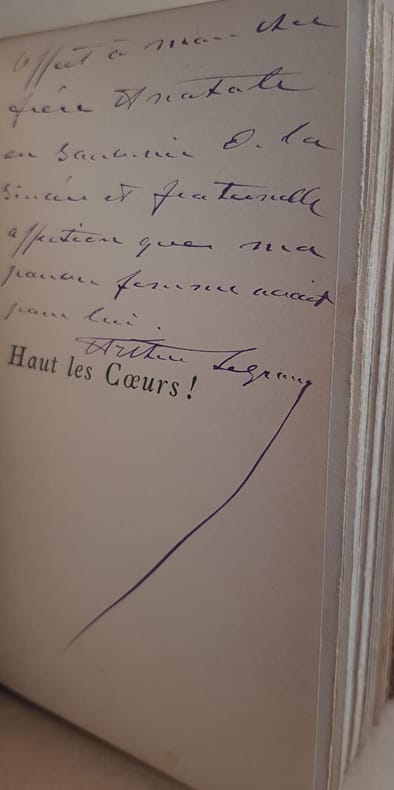 offert à mon cher
frère Anatole
en souvenir de la
sincère et fraternelle
affection que ma
pauvre femme avait
pour lui.
Arthur Legrand
Haut les Cœurs !